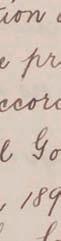 tion
e pr
ccord
l Go
, 189